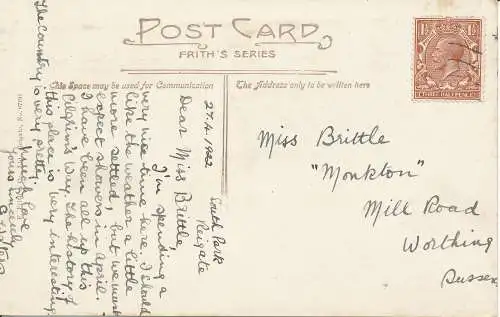 POST CARD
FRITH'S SERIES
This Space may be used for Communication
The Address only to be written here
THREE HALFPENCE
South Park
Reigate
27.4.1922
Dear Miss Brittle
I'm spending a
very nice time here. I should
like the weather a little
more settled, but we must
expect showers in April.
I have been all up this
Pilgrim's Way. The history of
this place is very interesting
The Country is very pretty.
Yours sincerely
Miss Brittle
"Monkton"
Mill Road
Worthing
Sussex